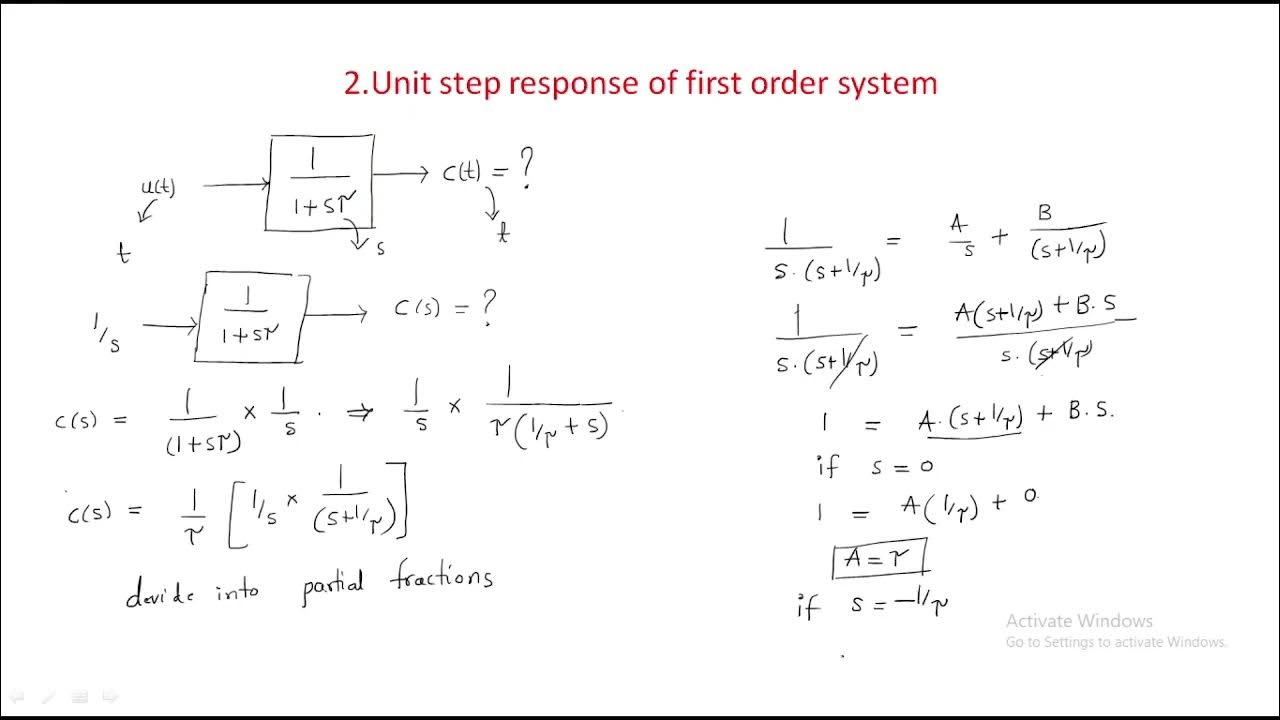 2.Unit step response of first order system
u(t) → 1/(1+sτ) → c(t) = ?
t
s
t
1/s → 1/(1+sτ) → c(s) = ?
c(s) = 1/(1+sτ) × 1/s . ⇒ 1/s × 1/τ(1/τ + s)
c(s) = 1/τ [1/s × 1/(s+1/τ)]
devide into partial fractions
1/s.(s+1/τ) = A/s + B/(s+1/τ)
1/s.(s+1/τ) = A(s+1/τ) + B.s/s.(s+1/τ)
1 = A.(s+1/τ) + B.s.
if s = 0
1 = A(1/τ) + 0
A = τ
if s = -1/τ
Activate Windows
Go to Settings to activate Windows.